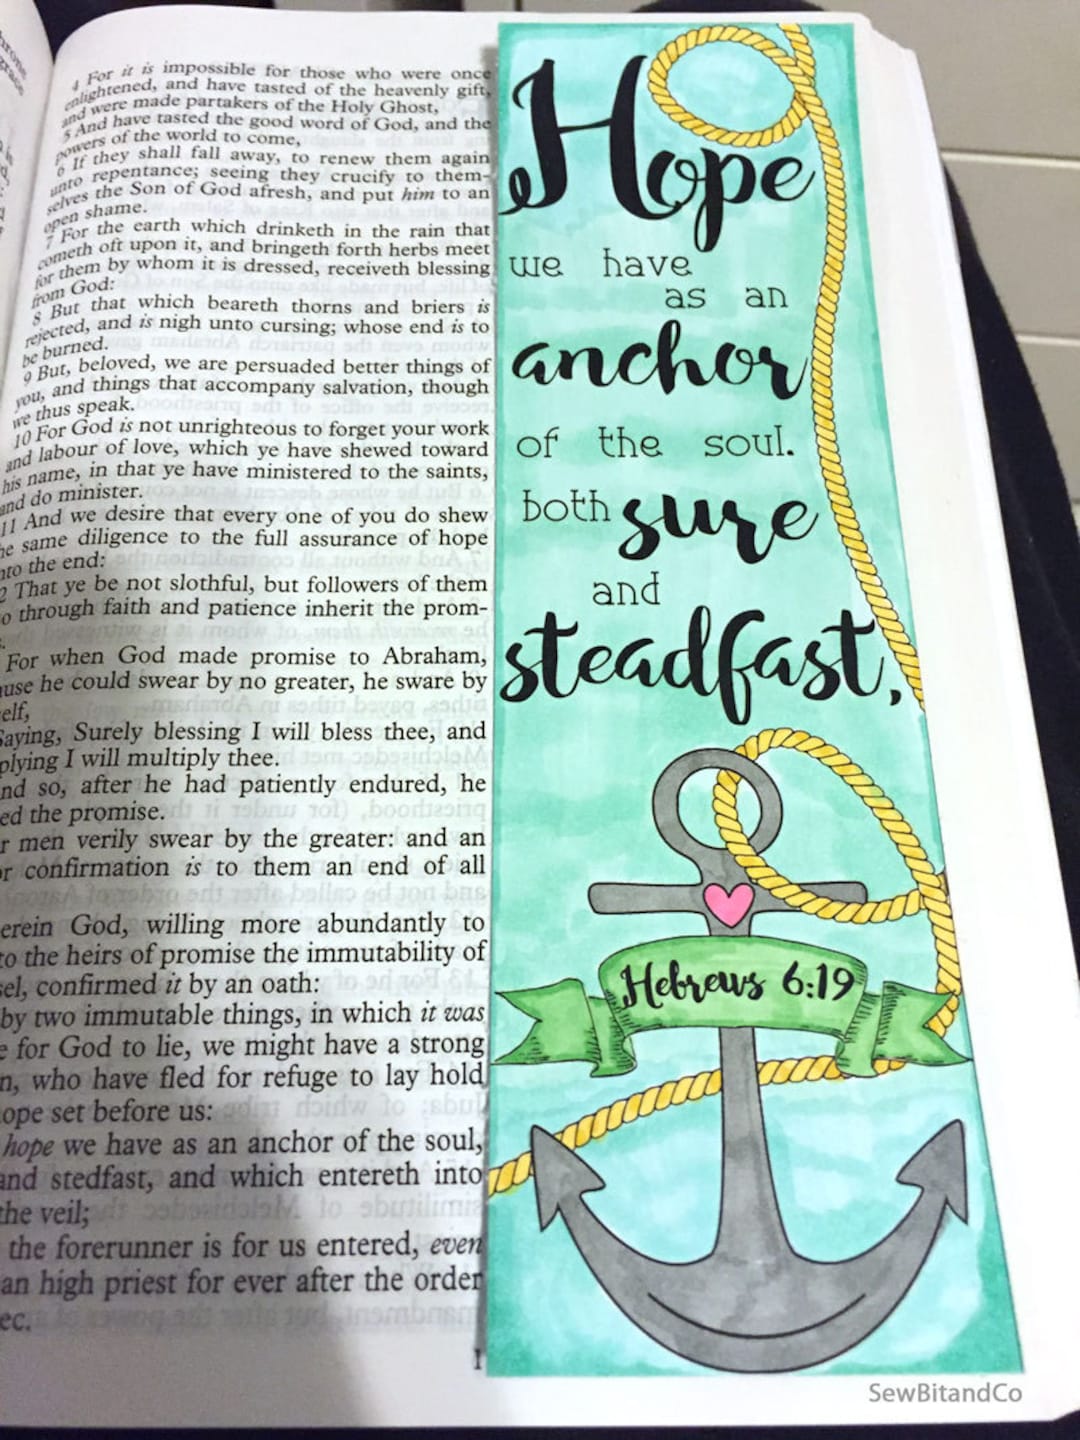 4 For it is impossible for those who were once
enlightened, and have tasted of the heavenly gift,
and were made partakers of the Holy Ghost,
5 And have tasted the good word of God, and the
powers of the world to come,
6 If they shall fall away, to renew them again
unto repentance; seeing they crucify to them-
selves the Son of God afresh, and put him to an
open shame.
7 For the earth which drinketh in the rain that
cometh oft upon it, and bringeth forth herbs meet
for them by whom it is dressed, receiveth blessing
from God:
8 But that which beareth thorns and briers is
rejected, and is nigh unto cursing; whose end is to
be burned.
9 But, beloved, we are persuaded better things of
you, and things that accompany salvation, though
we thus speak.
10 For God is not unrighteous to forget your work
and labour of love, which ye have shewed toward
his name, in that ye have ministered to the saints,
and do minister.
11 And we desire that every one of you do shew
he same diligence to the full assurance of hope
nto the end:
2 That ye be not slothful, but followers of them
o through faith and patience inherit the prom-
For when God made promise to Abraham,
use he could swear by no greater, he sware by
elf,
Saying, Surely blessing I will bless thee, and
plying I will multiply thee.
nd so, after he had patiently endured, he
ed the promise.
r men verily swear by the greater: and an
r confirmation is to them an end of all
erein God, willing more abundantly to
to the heirs of promise the immutability of
sel, confirmed it by an oath:
by two immutable things, in which it was
e for God to lie, we might have a strong
n, who have fled for refuge to lay hold
ope set before us:
hope we have as an anchor of the soul,
and stedfast, and which entereth into
the veil;
the forerunner is for us entered, even
an high priest for ever after the order
ec.
Hope
we have
as an
anchor
of the soul.
both sure
and
steadfast,
Hebrews 6:19
SewBitandCo